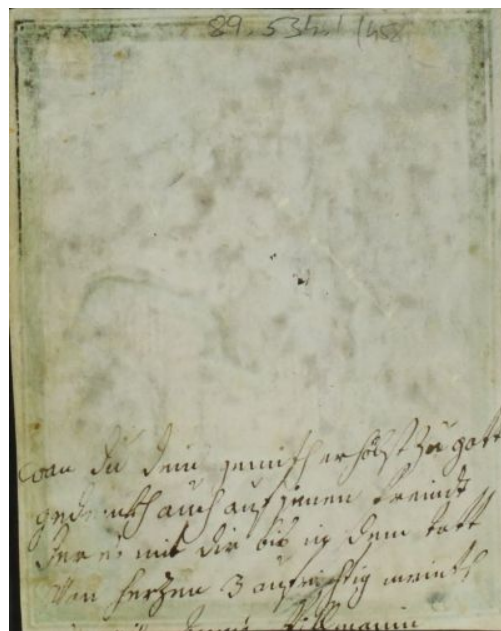 89. 53
wan du dein gemith erhöbst zu gott
gedenckh auch auf jenen freindt
der es mit dir bis in dem tott
von herzen aufrichtig meint